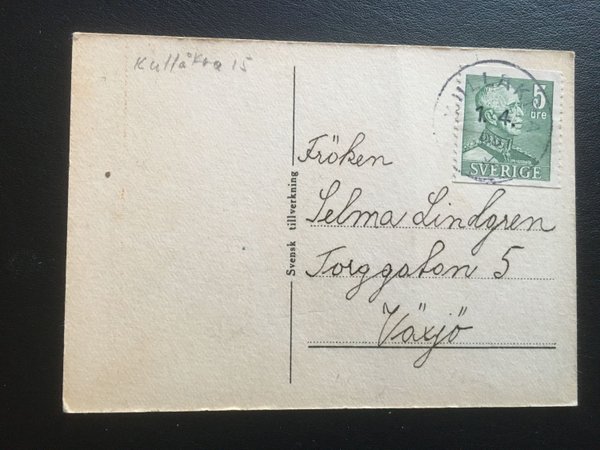 Kullåkra 15
KULLÅKRA
1.4.
5
öre
SVERIGE
Svensk tillverkning
Fröken
Selma Lindgren
Torggatan 5
Växjö